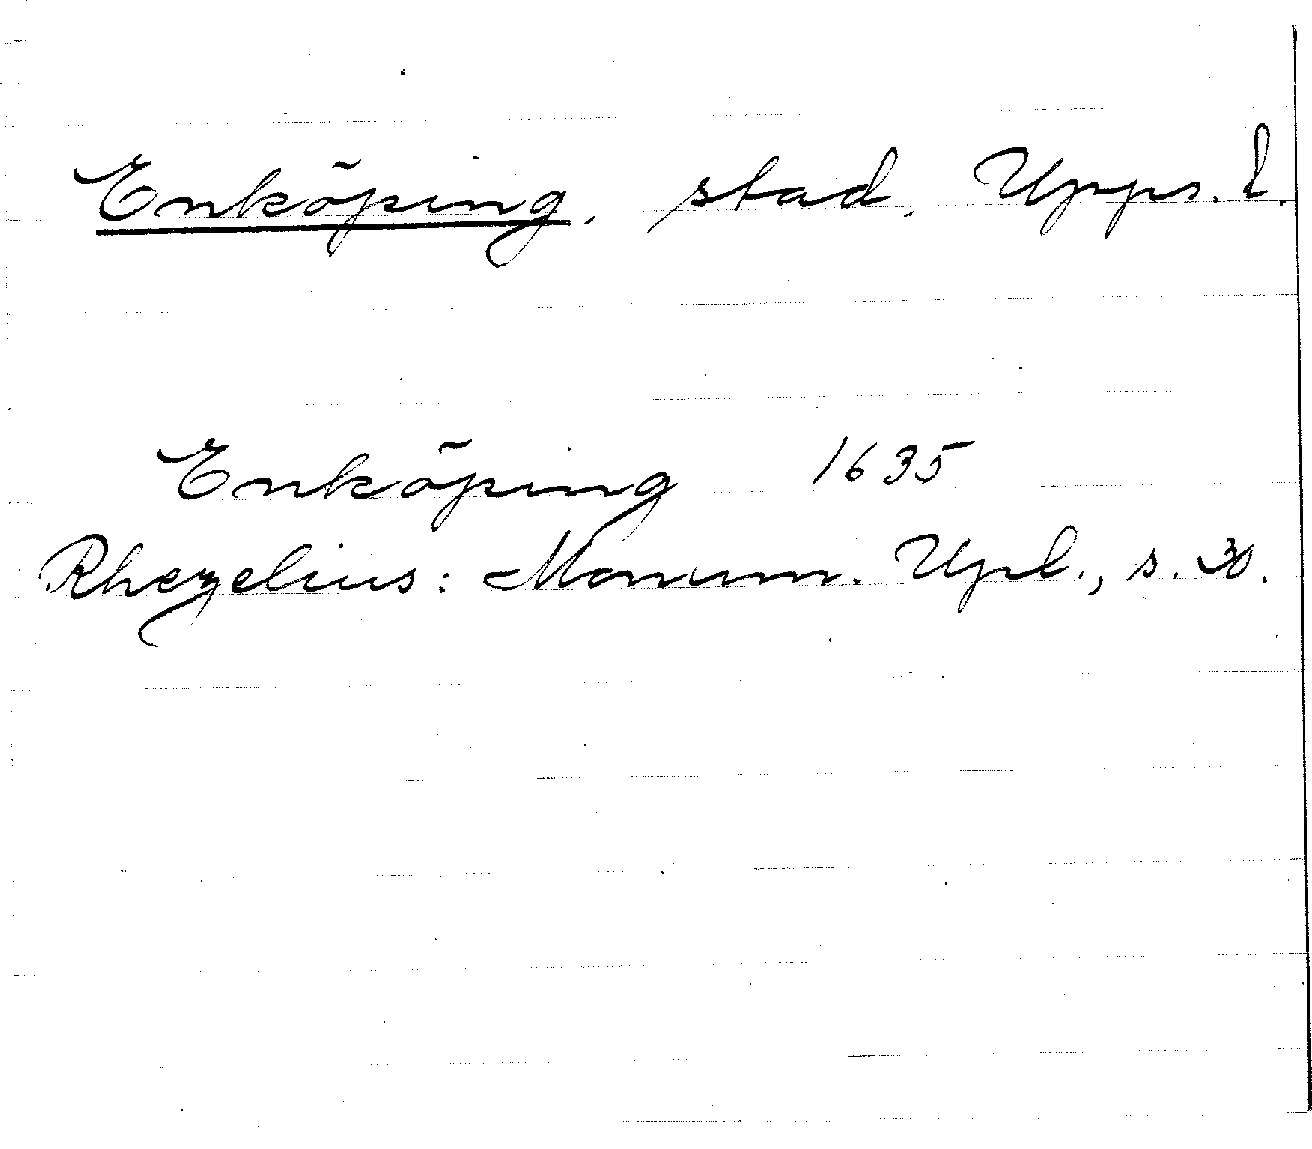 Enköping, stad, Upps. l.
Enköping 1635
Rhezelius: Monum. Upl., s. 30.